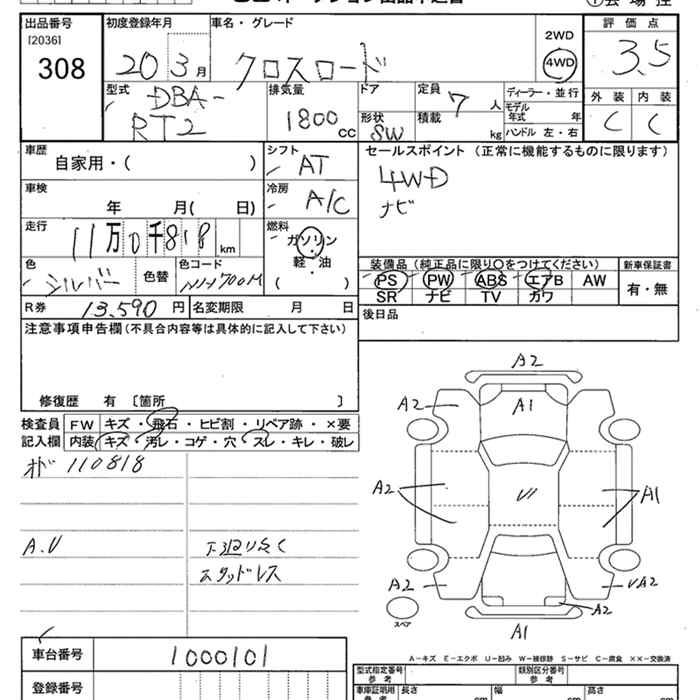 出品番号
[2036]
308
初度登録年月
20 3月
車名・グレード
クロスロード
2WD
4WD
評価点
3.5
外装 内装
C C
型式
DBA-
RT2
排気量
1800cc
ドア
形状
SW
定員
7人
積載 kg
ディーラー・並行
モデル年式 年
ハンドル 左・右
車歴
自家用・( )
シフト
AT
セールスポイント (正常に機能するものに限ります)
4WD
ナビ
車検
年 月( 日)
冷房
A/C
走行
11万0千818km
燃料
ガソリン
・
軽・油
( )
色
シルバー
色替
色コード
NH700M
装備品 (純正品に限り○をつけてください)
PS PW ABS エアB AW
SR ナビ TV カワ
新車保証書
有・無
R券 13,590円
名変期限 月 日
後日品
注意事項申告欄(不具合内容等は具体的に記入して下さい)
修復歴 有 〔箇所 〕
検査員記入欄
FW キズ・飛石・ヒビ割・リペア跡・×要
内装 キズ・汚レ・コゲ・穴・スレ・キレ・破レ
110818
A.V
スタッドレス
A2
A2 A1
A2 A1
A2 A2
A2
A1
スペア
A-キズ E-エクボ U-凹み W-補修跡 S-サビ C-腐食 ××-交換済
車台番号 1000101
登録番号
型式指定番号 参考
類別区分番号 参考
車庫証明用 参考
長さ cm
幅 cm
高さ cm